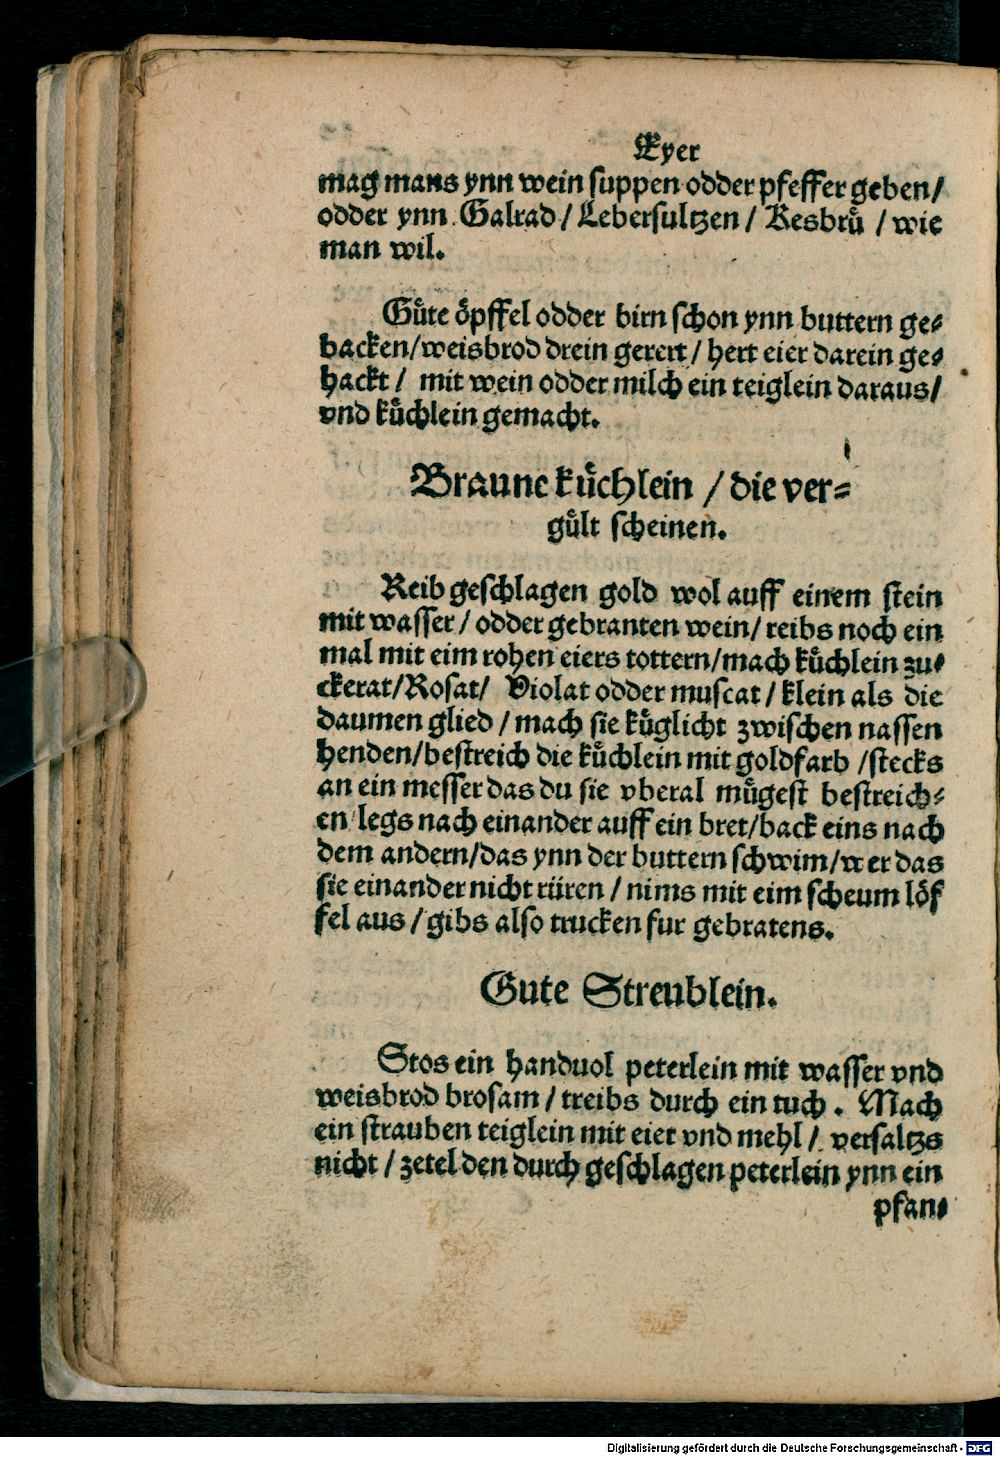 Eyer
mag mans ynn wein suppen odder pfeffer geben/
odder ynn Galrad / Lebersultzen / Kesbruͤ / wie
man wil.
Guͤte oͤpffel odder birn schon ynn buttern ge⸗
backen/weisbrod drein gerert / hert eier darein ge⸗
hackt / mit wein odder milch ein teiglein daraus/
vnd kuͤchlein gemacht.
Braune kuͤchlein / die ver⸗
guͤlt scheinen.
Reib geschlagen gold wol auff einem stein
mit wasser / odder gebranten wein/ reibs noch ein
mal mit eim rohen eiers tottern/mach kuͤchlein zu⸗
ckerat/Rosat/ Violat odder muscat / klein als die
daumen glied / mach sie kuͤglicht zwischen nassen
henden/bestreich die kuͤchlein mit goldfarb /stecks
an ein messer das du sie vberal muͤgest bestreich⸗
en/legs nach einander auff ein bret/back eins nach
dem andern/das ynn der buttern schwim/wer das
sie einander nicht ruͤren / nims mit eim scheum loͤf
fel aus / gibs also trucken fur gebratens.
Gute Streublein.
Stos ein handuol peterlein mit wasser vnd
weisbrod brosam / treibs durch ein tuch . Mach
ein strauben teiglein mit eier vnd mehl / versaltzs
nicht / zetel den durch geschlagen peterlein ynn ein
pfan⸗
Digitalisierung gefördert durch die Deutsche Forschungsgemeinschaft - DFG